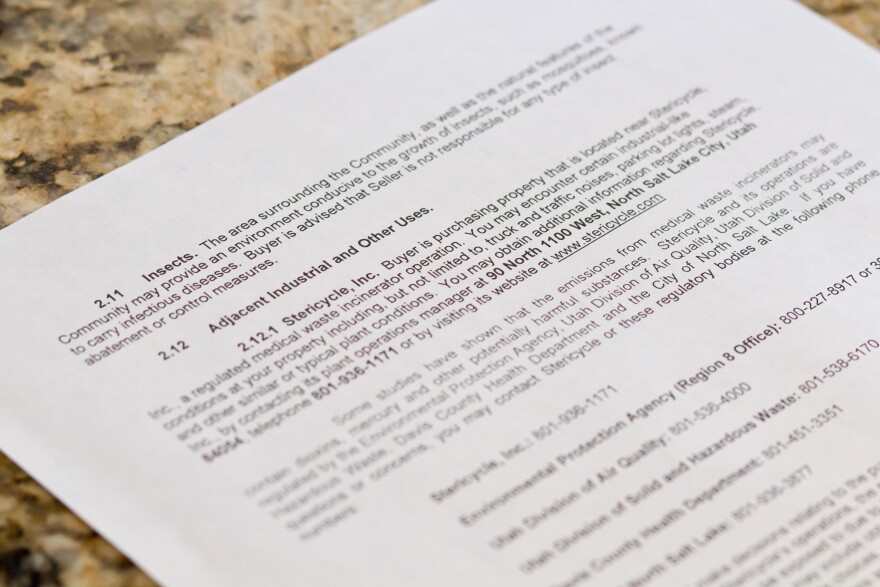 2.11 Insects. The area surrounding the Community, as well as the natural features of the
Community may provide an environment conducive to the growth of insects, such as mosquitoes, known
to carry infectious diseases. Buyer is advised that Seller is not responsible for any type of insect
abatement or control measures.
2.12 Adjacent Industrial and Other Uses.
2.12.1 Stericycle, Inc. Buyer is purchasing property that is located near Stericycle,
Inc., a regulated medical waste incinerator operation. You may encounter certain industrial-like
conditions at your property including, but not limited to, truck and traffic noises, parking lot lights, steam,
and other similar or typical plant conditions. You may obtain additional information regarding Stericycle,
Inc. by contacting its plant operations manager at 90 North 1100 West, North Salt Lake City, Utah
84054, telephone 801-936-1171 or by visiting its website at www.stericycle.com
Some studies have shown that the emissions from medical waste incinerators may
contain dioxins, mercury and other potentially harmful substances. Stericycle and its operations are
regulated by the Environmental Protection Agency, Utah Division of Air Quality, Utah Division of Solid and
Hazardous Waste, Davis County Health Department and the City of North Salt Lake. If you have
questions or concerns, you may contact Stericycle or these regulatory bodies at the following phone
numbers:
Stericycle, Inc.: 801-936-1171
Environmental Protection Agency (Region 8 Office): 800-227-8917 or
Utah Division of Air Quality: 801-536-4000
Utah Division of Solid and Hazardous Waste: 801-538-6170
County Health Department: 801-451-3351
North Salt Lake: 801-936-3877
decisions relating to the
operations
exposed to